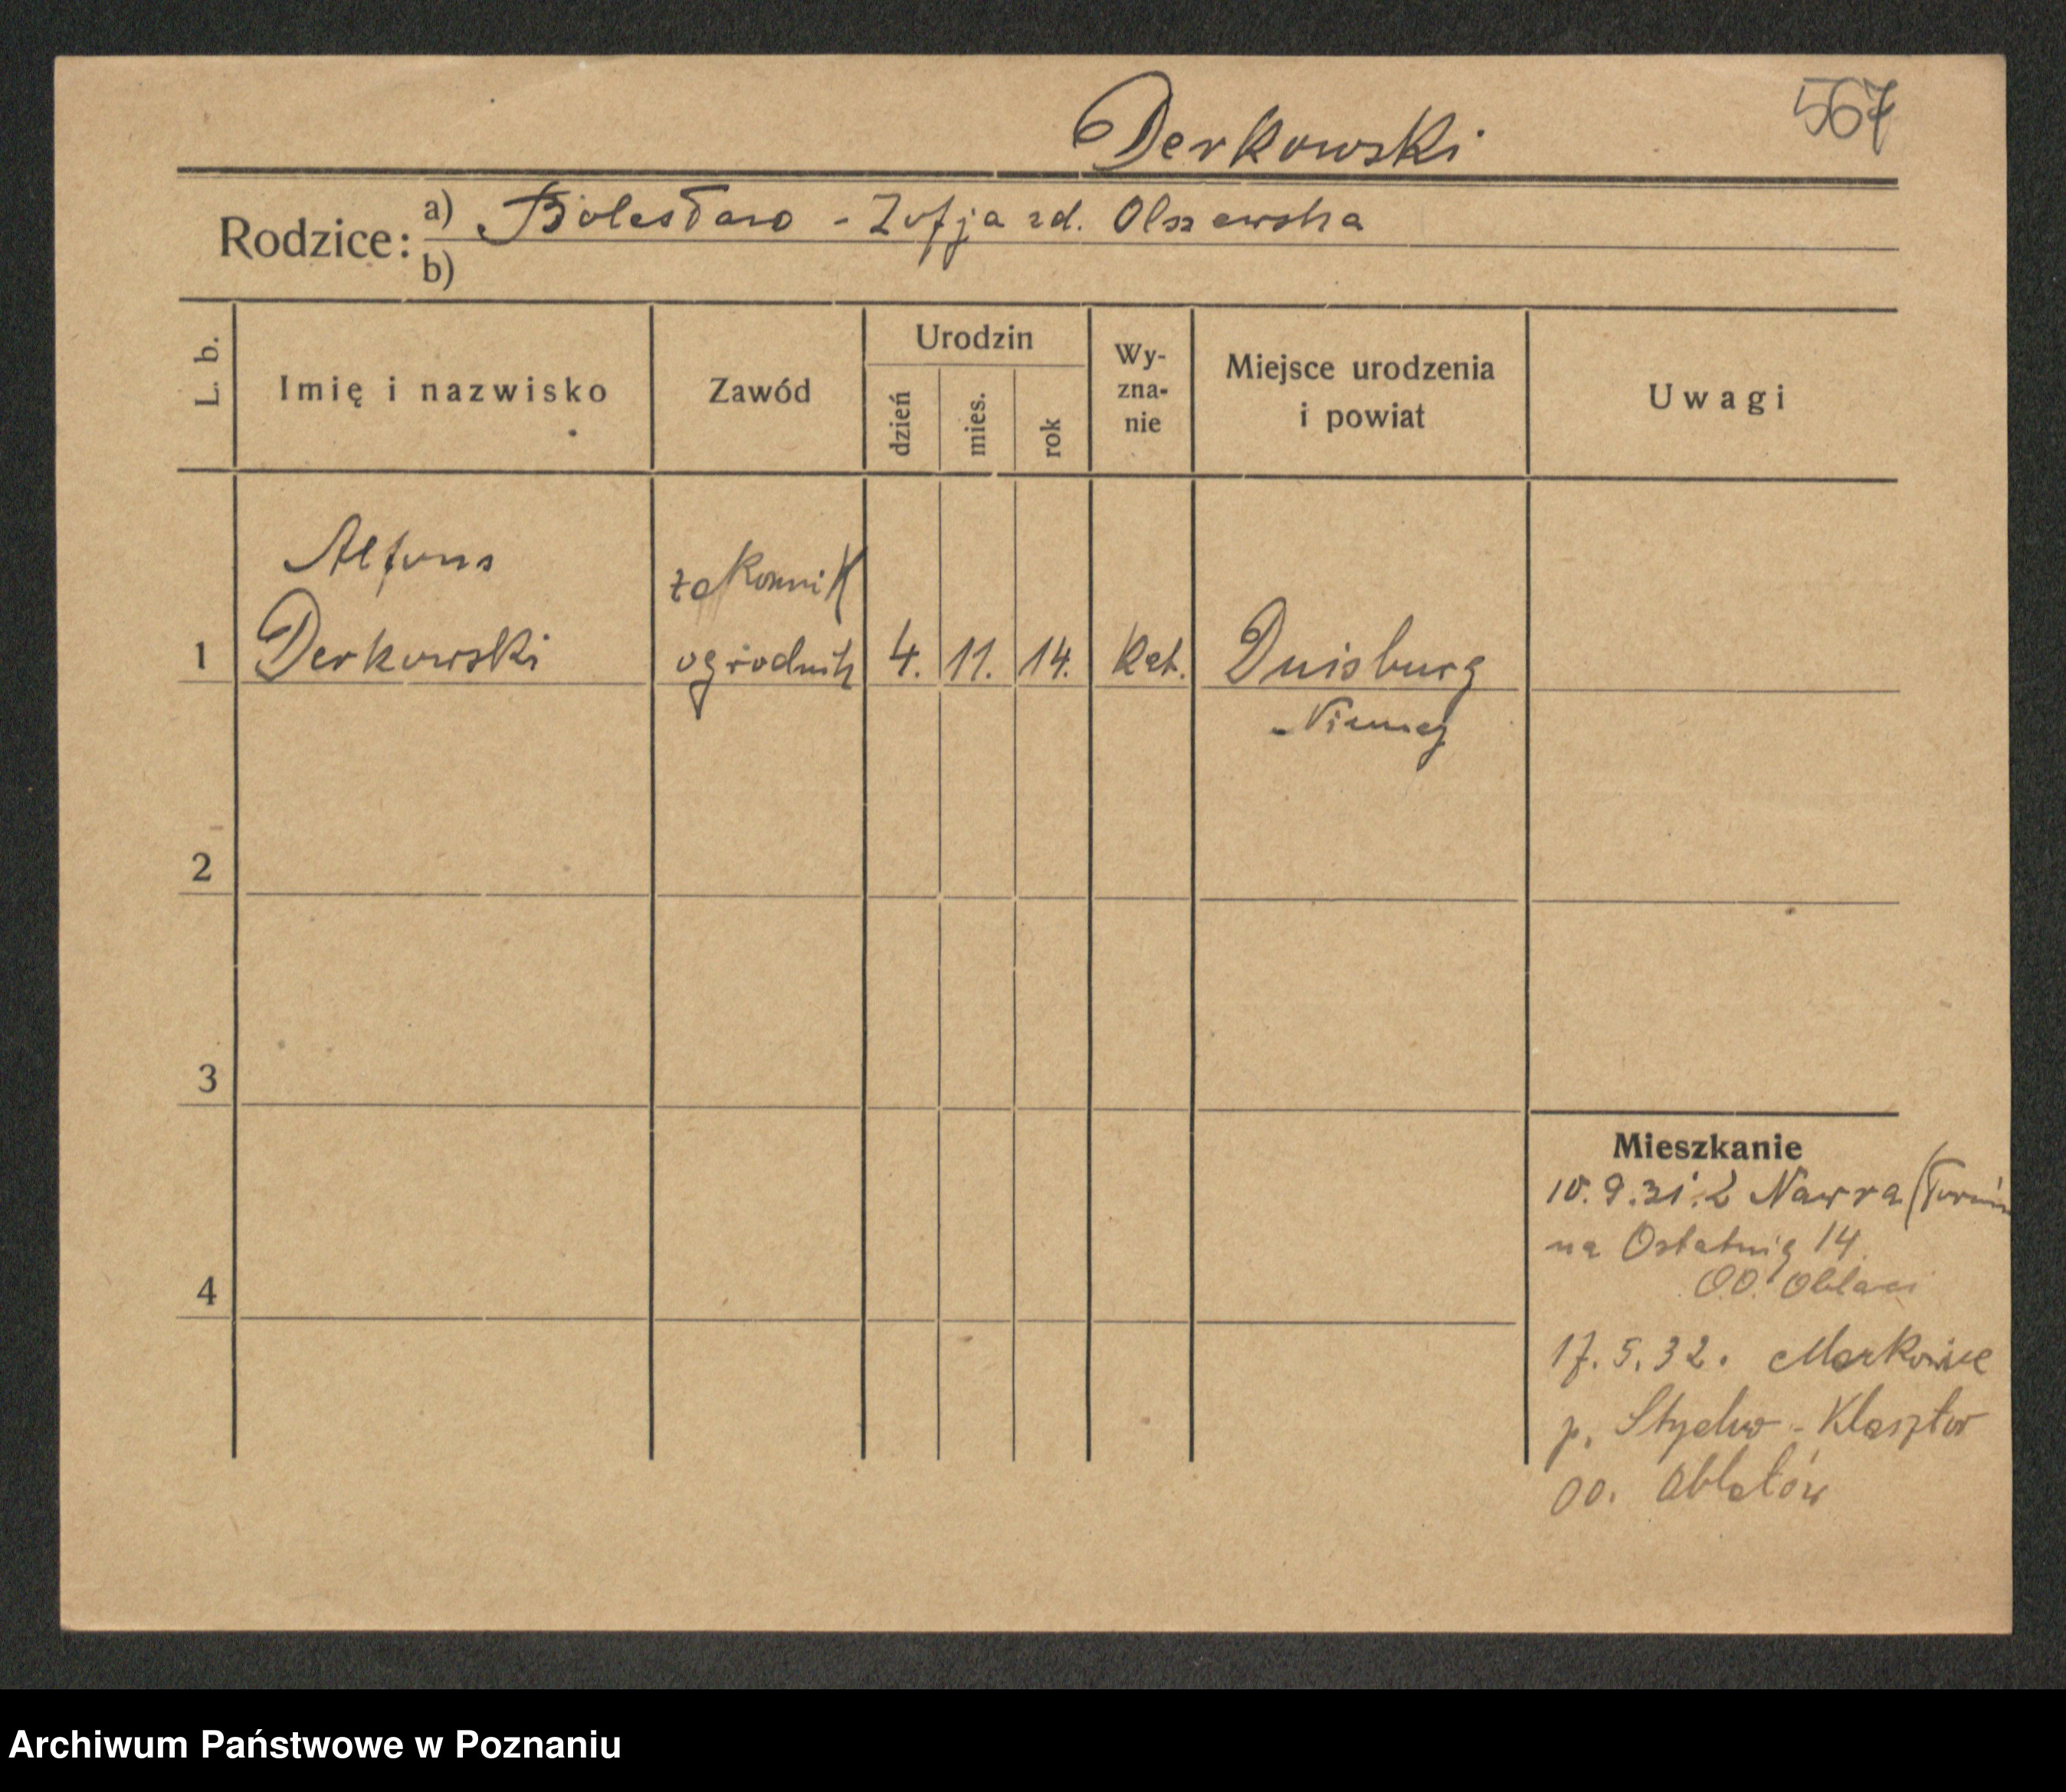 567
Derkowski
Rodzice: a) Bolesław - Zofja zd. Olszewska
b)
L. b.
Imię i nazwisko
Zawód
Urodzin
dzień
mies.
rok
Wy-
zna-
nie
Miejsce urodzenia
i powiat
Uwagi
Alfons
zakonnik
1 Derkowski ogrodnik 4. 11. 14. kat. Duisburg
Niemcy
2
3
4
Mieszkanie
10. 9. 31. z Nawra (Toruń
na Ostatnią 14.
OO. Oblaci
17. 5. 32. Markowice
p. Klasztor
OO. Oblatów
Archiwum Państwowe w Poznaniu